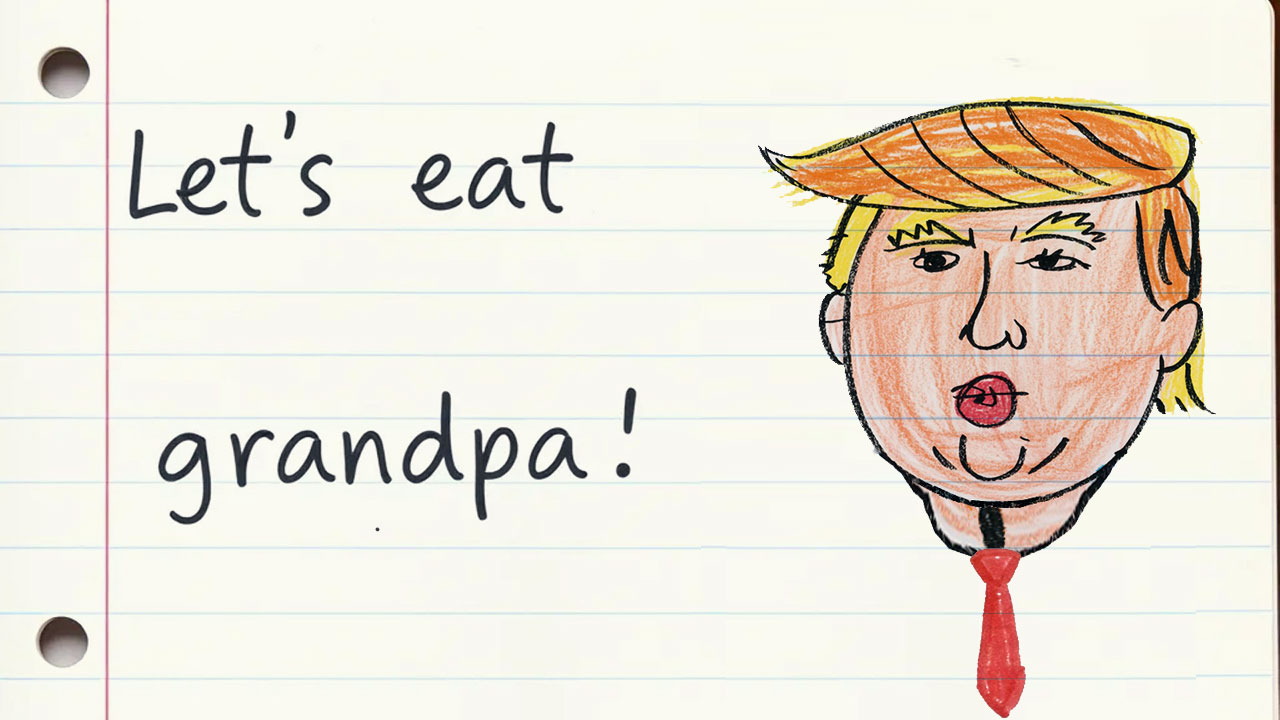 Let's eat
grandpa!